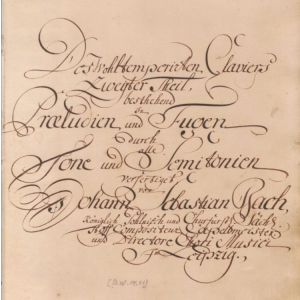 Des Wohltemperirten Claviers
Zweyter Theil,
besthehend
in
Præludien und Fugen
durch
alle
Tone und Semitonien
verfertiget
von
Johann Sebastian Bach,
Königlich Pohlnisch und Churfürstl. Sächs.
Hoff Compositeur, Capellmeister
und Directore Chori Musici
in Leipzig.